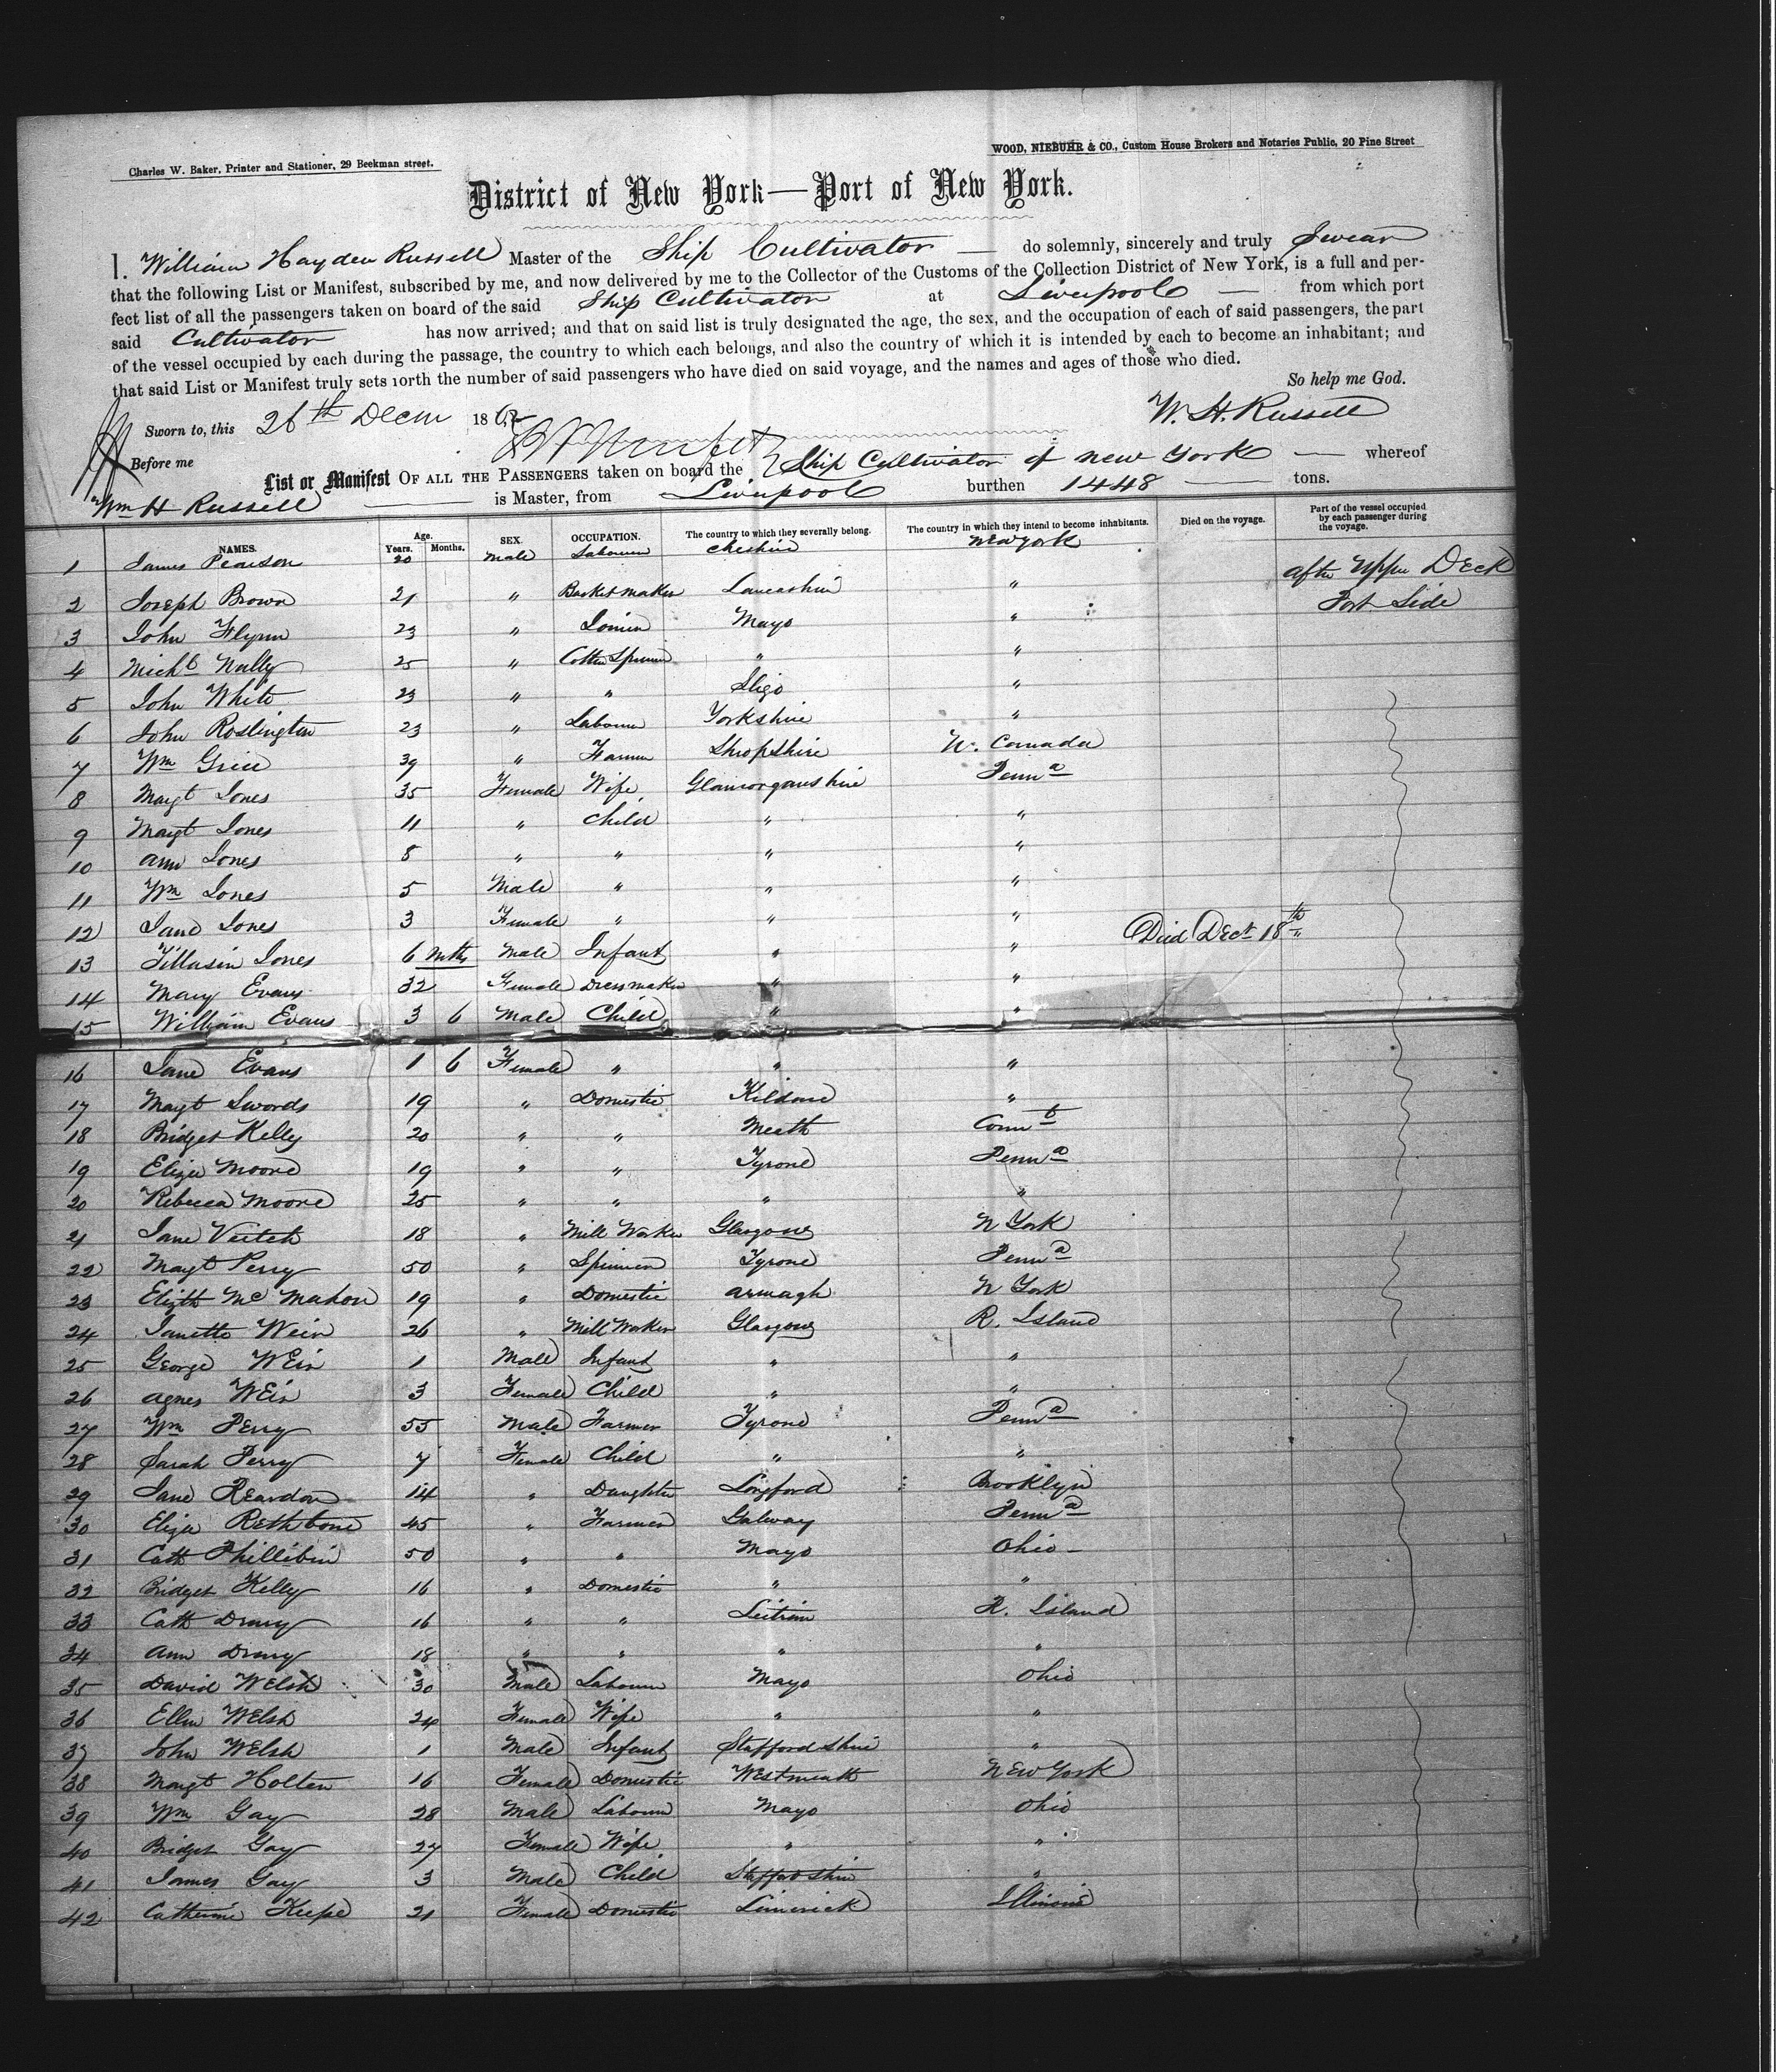 Charles W. Baker, Printer and Stationer, 29 Beekman street.
WOOD, NIEBUHR & CO., Custom House Brokers and Notaries Public, 20 Pine Street
District of New York—Port of New York.
I. William Hayden Russell Master of the Ship Cultivator — do solemnly, sincerely and truly Swear
that the following List or Manifest, subscribed by me, and now delivered by me to the Collector of the Customs of the Collection District of New York, is a full and per-
fect list of all the passengers taken on board of the said Ship Cultivator at Liverpool — from which port
said Cultivator has now arrived; and that on said list is truly designated the age, the sex, and the occupation of each of said passengers, the part
of the vessel occupied by each during the passage, the country to which each belongs, and also the country of which it is intended by each to become an inhabitant; and
that said List or Manifest truly sets forth the number of said passengers who have died on said voyage, and the names and ages of those who died.
So help me God.
Sworn to, this 26th Decm 186
W. H. Russell
Before me
List or Manifest OF ALL THE PASSENGERS taken on board the Ship Cultivator of new York — whereof
Wm H Russell — is Master, from Liverpool burthen 1448 — tons.
NAMES. Age. Years. Months. SEX. OCCUPATION. The country to which they severally belong. The country in which they intend to become inhabitants. Died on the voyage. Part of the vessel occupied by each passenger during the voyage.
1 James Pearson 20 Male Labourer Cheshire New York After Upper Deck
2 Joseph Brown 21 " Basket maker Lancashire " Port Side
3 John Flynn 23 " Mayo "
4 Michl Nally 25 " Cotton Spinner " "
5 John White 23 " " Sligo "
6 John Roslington 23 " Labourer Yorkshire "
7 Wm Grice 39 " Farmer Shropshire W. Canada
8 Margt Jones 35 Female Wife Glamorganshire Penna
9 Margt Jones 11 " Child " "
10 Ann Jones 8 " " " "
11 Wm Jones 5 Male " " "
12 Jane Jones 3 Female " " "
13 Tillasin Jones 6 mths Male Infant " " Died Decr 18th
14 Mary Evans 32 Female Dressmaker " "
15 William Evans 3 6 Male Child " "
16 Jane Evans 1 6 Female " " "
17 Margt Swords 19 " Domestic Kildare "
18 Bridget Kelly 20 " " Meath Connt
19 Eliza Moore 19 " " Tyrone Penna
20 Rebecca Moore 25 " " " "
21 Jane Veitch 18 " Mill Worker Glasgow N York
22 Margt Perry 50 " Spinner Tyrone Penna
23 Elizth Mc Mahon 19 " Domestic Armagh N York
24 Janette Weir 26 " Mill Worker Glasgow R. Island
25 George Weir 1 Male Infant " "
26 Agnes Weir 3 Female Child " "
27 Wm Perry 55 Male Farmer Tyrone Penna
28 Sarah Perry 7 Female Child " "
29 Jane Reardon 14 " Daughter Longford Brooklyn
30 Eliza Rethbone 45 " Farmer Galway Penna
31 Cath Phillibin 50 " " Mayo Ohio
32 Bridget Kelly 16 " Domestic " "
33 Cath Drury 16 " " Leitrim R. Island
34 Ann Drury 18 " " " "
35 David Welsh 30 Male Labourer Mayo Ohio
36 Ellen Welsh 24 Female Wife " "
37 John Welsh 1 Male Infant Staffordshire "
38 Margt Holten 16 Female Domestic Westmeath New York
39 Wm Gay 28 Male Labourer Mayo Ohio
40 Bridget Gay 27 Female Wife " "
41 James Gay 3 Male Child Staffordshire "
42 Catherine Keefe 21 Female Domestic Limerick Illinois